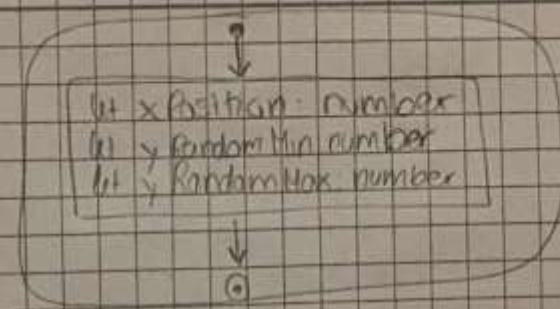 let xPosition: number
let yRandomMin number
let yRandomMax: number